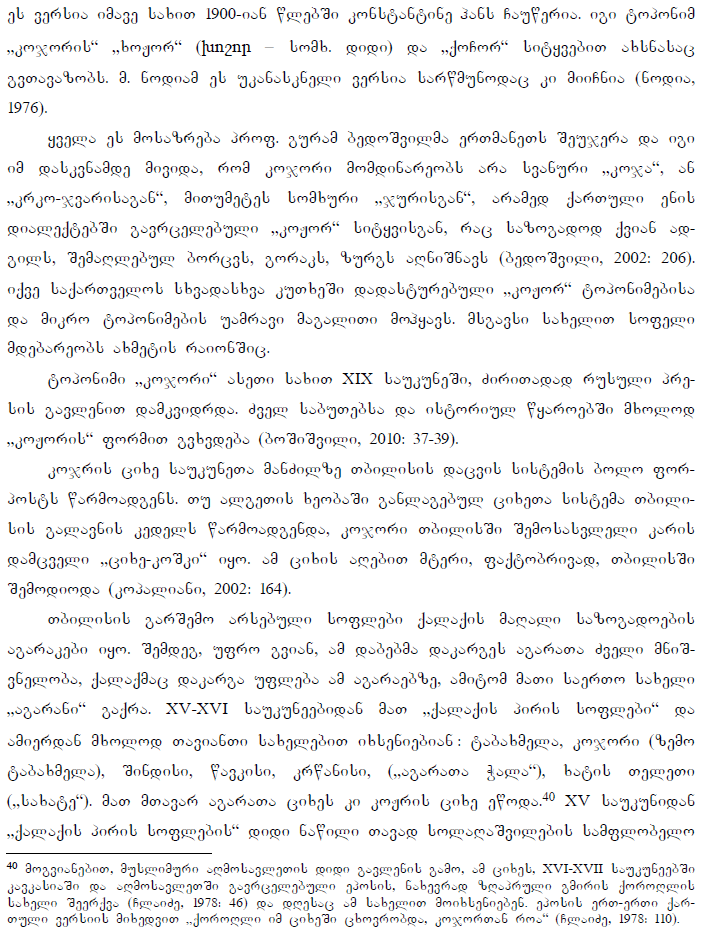 ეს ვერსია იმავე სახით 1900-იან წლებში კონსტანტინე ჰანს ჩაუწერია. იგი ტოპონიმ
„კოჯორის“ „ხოჟორ“ (խոշոր – სომხ. დიდი) და „ქოჩორ“ სიტყვებით ახსნასაც
გვთავაზობს. მ. ნოდიამ ეს უკანასკნელი ვერსია სარწმუნოდაც კი მიიჩნია (ნოდია,
1976).
ყველა ეს მოსაზრება პროფ. გურამ ბედოშვილმა ერთმანეთს შეუჯერა და იგი
იმ დასკვნამდე მივიდა, რომ კოჯორი მომდინარეობს არა სვანური „კოჯა“, ან
„კრკო-ჯვარისაგან“, მითუმეტეს სომხური „ჯურისგან“, არამედ ქართული ენის
დიალექტებში გავრცელებული „კოჟორ“ სიტყვისგან, რაც საზოგადოდ ქვიან ად-
გილს, შემაღლებულ ბორცვს, გორაკს, ზურგს აღნიშნავს (ბედოშვილი, 2002: 206).
იქვე საქართველოს სხვადასხვა კუთხეში დადასტურებული „კოჟორ“ ტოპონიმებისა
და მიკრო ტოპონიმების უამრავი მაგალითი მოჰყავს. მსგავსი სახელით სოფელი
მდებარეობს ახმეტის რაიონშიც.
ტოპონიმი „კოჯორი“ ასეთი სახით XIX საუკუნეში, ძირითადად რუსული პრე-
სის გავლენით დამკვიდრდა. ძველ საბუთებსა და ისტორიულ წყაროებში მხოლოდ
„კოჟორის“ ფორმით გვხვდება (ბოშიშვილი, 2010: 37-39).
კოჯრის ციხე საუკუნეთა მანძილზე თბილისის დაცვის სისტემის ბოლო ფორ-
პოსტს წარმოადგენს. თუ ალგეთის ხეობაში განლაგებულ ციხეთა სისტემა თბილი-
სის გალავნის კედელს წარმოადგენდა, კოჯორი თბილისში შემოსასვლელი კარის
დამცველი „ციხე-კოშკი“ იყო. ამ ციხის აღებით მტერი, ფაქტობრივად, თბილისში
შემოდიოდა (კოპალიანი, 2002: 164).
თბილისის გარშემო არსებული სოფლები ქალაქის მაღალი საზოგადოების
აგარაკები იყო. შემდეგ, უფრო გვიან, ამ დაბებმა დაკარგეს აგარათა ძველი მნიშ-
ვნელობა, ქალაქმაც დაკარგა უფლება ამ აგარაებზე, ამიტომ მათი საერთო სახელი
„აგარანი“ გაქრა. XV-XVI საუკუნეებიდან მათ „ქალაქის პირის სოფლები“ და
ამიერდან მხოლოდ თავიანთი სახელებით იხსენიებიან: ტაბახმელა, კოჯორი (ზემო
ტაბახმელა), შინდისი, წავკისი, კრწანისი, („აგარათა ჭალა“), ხატის თელეთი
(„სახატე“). მათ მთავარ აგარათა ციხეს კი კოჟრის ციხე ეწოდა.⁴⁰ XV საუკუნიდან
„ქალაქის პირის სოფლების“ დიდი ნაწილი თავად სოლაღაშვილების სამფლობელო
⁴⁰ მოგვიანებით, მუსლიმური აღმოსავლეთის დიდი გავლენის გამო, ამ ციხეს, XVI-XVII საუკუნეებში
კავკასიაში და აღმოსავლეთში გავრცელებული ეპოსის, ნახევრად ზღაპრული გმირის ქოროღლის
სახელი შეერქვა (ჩლაიძე, 1978: 46) და დღესაც ამ სახელით მოიხსენიებენ. ეპოსის ერთ-ერთი ქარ-
თული ვერსიის მიხედვით „ქოროღლი იმ ციხეში ცხოვრობდა, კოჯორთან როა“ (ჩლაიძე, 1978: 110).